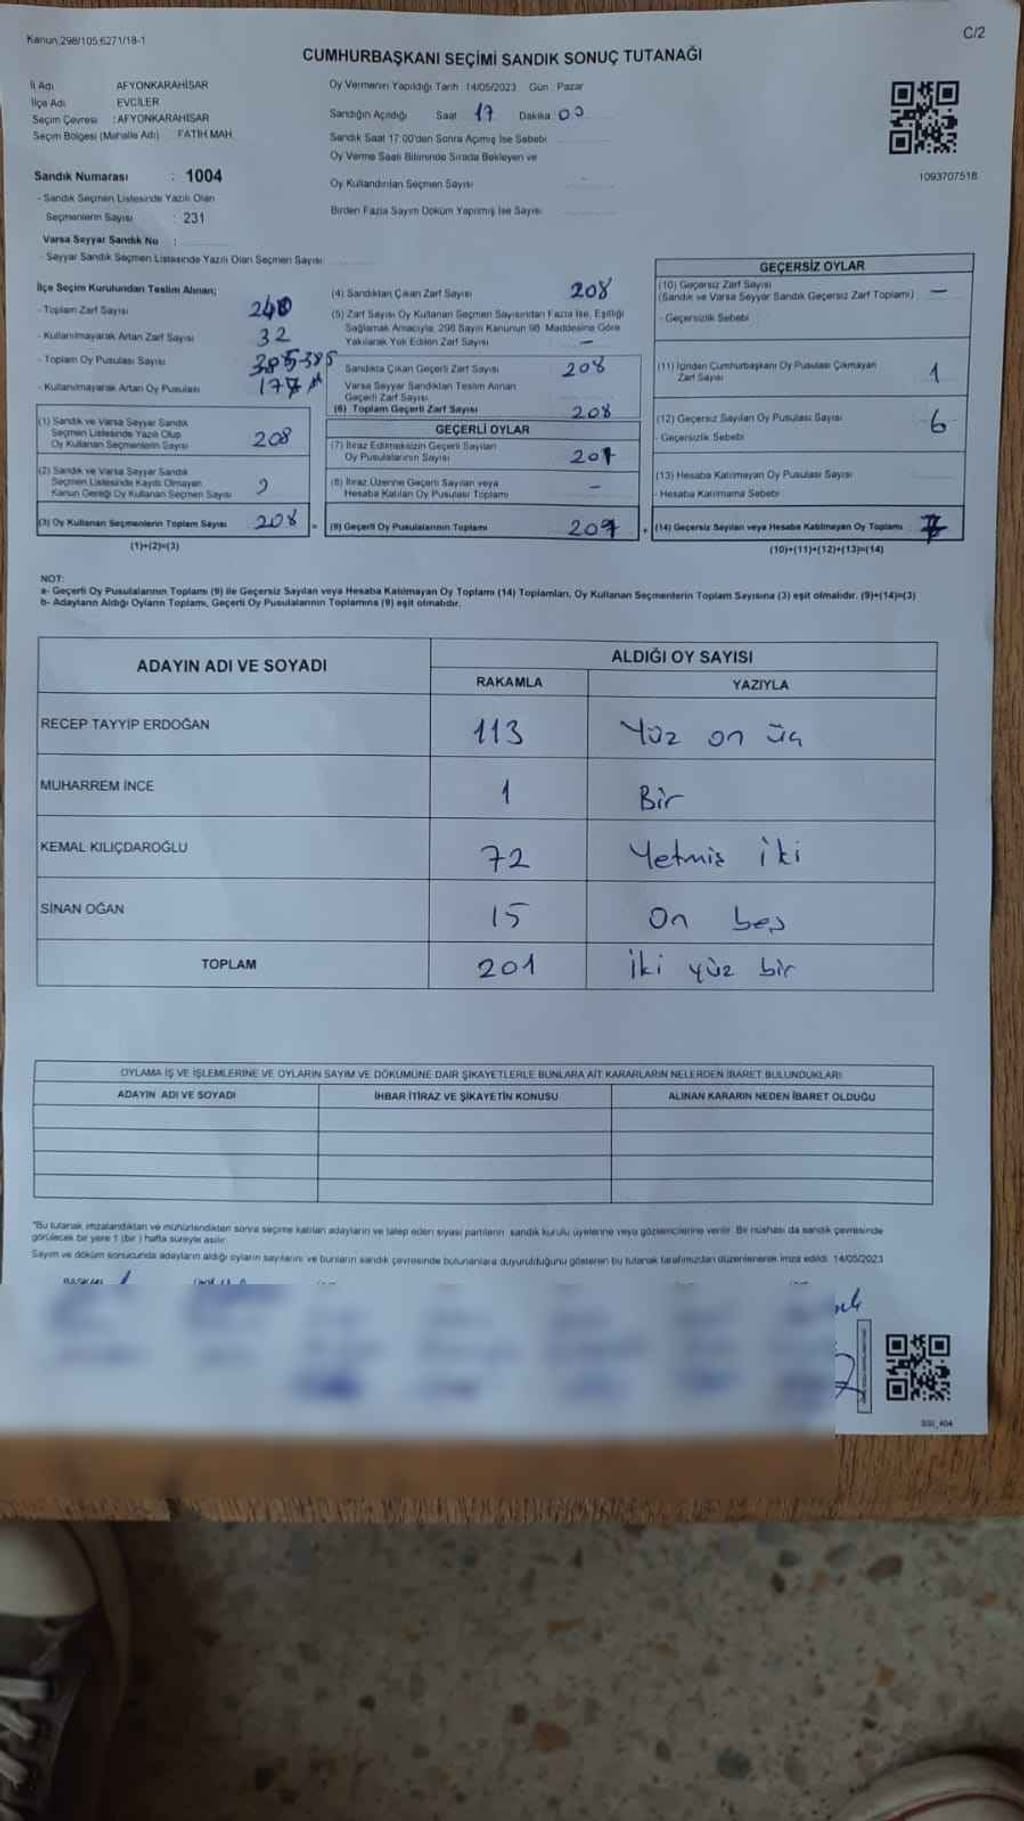 Kanun 298/105,6271/18-1
C/2
CUMHURBAŞKANI SEÇİMİ SANDIK SONUÇ TUTANAĞI
İl Adı AFYONKARAHİSAR
İlçe Adı EVCİLER
Seçim Çevresi : AFYONKARAHİSAR
Seçim Bölgesi (Mahalle Adı) FATİH MAH.
Oy Vermenin Yapıldığı Tarih 14/05/2023 Gün Pazar
Sandığın Açıldığı Saat 17 Dakika 00
Sandık Saat 17:00'den Sonra Açılmış İse Sebebi
Oy Verme Saati Bitiminde Sırada Bekleyen ve
Oy Kullandırılan Seçmen Sayısı
Birden Fazla Sayım Döküm Yapılmış İse Sayısı
1093707518
Sandık Numarası : 1004
- Sandık Seçmen Listesinde Yazılı Olan
Seçmenlerin Sayısı : 231
Varsa Seyyar Sandık No :
- Seyyar Sandık Seçmen Listesinde Yazılı Olan Seçmen Sayısı
İlçe Seçim Kurulundan Teslim Alınan;
- Toplam Zarf Sayısı 240
- Kullanılmayarak Artan Zarf Sayısı 32
- Toplam Oy Pusulası Sayısı 385 385
- Kullanılmayarak Artan Oy Pusulası 177
(1) Sandık ve Varsa Seyyar Sandık
Seçmen Listesinde Yazılı Olup
Oy Kullanan Seçmenlerin Sayısı 208
(2) Sandık ve Varsa Seyyar Sandık
Seçmen Listesinde Kayıtlı Olmayan
Kanun Gereği Oy Kullanan Seçmen Sayısı
(3) Oy Kullanan Seçmenlerin Toplam Sayısı 208
(1)+(2)=(3)
(4) Sandıktan Çıkan Zarf Sayısı 208
(5) Zarf Sayısı Oy Kullanan Seçmen Sayısından Fazla İse, Eşitliği
Sağlamak Amacıyla, 298 Sayılı Kanunun 98. Maddesine Göre
Yakılarak Yok Edilen Zarf Sayısı —
Sandıkta Çıkan Geçerli Zarf Sayısı 208
Varsa Seyyar Sandıktan Teslim Alınan
Geçerli Zarf Sayısı
(6) Toplam Geçerli Zarf Sayısı 208
GEÇERLİ OYLAR
(7) İtiraz Edilmeksizin Geçerli Sayılan
Oy Pusulalarının Sayısı 201
(8) İtiraz Üzerine Geçerli Sayılan veya
Hesaba Katılan Oy Pusulası Toplamı —
(9) Geçerli Oy Pusulalarının Toplamı 201
GEÇERSİZ OYLAR
(10) Geçersiz Zarf Sayısı
(Sandık ve Varsa Seyyar Sandık Geçersiz Zarf Toplamı) —
- Geçersizlik Sebebi
(11) İçinden Cumhurbaşkanı Oy Pusulası Çıkmayan
Zarf Sayısı 1
(12) Geçersiz Sayılan Oy Pusulası Sayısı 6
- Geçersizlik Sebebi
(13) Hesaba Katılmayan Oy Pusulası Sayısı
- Hesaba Katılmama Sebebi
(14) Geçersiz Sayılan veya Hesaba Katılmayan Oy Toplamı 7
(10)+(11)+(12)+(13)=(14)
NOT:
a- Geçerli Oy Pusulalarının Toplamı (9) ile Geçersiz Sayılan veya Hesaba Katılmayan Oy Toplamı (14) Toplamları, Oy Kullanan Seçmenlerin Toplam Sayısına (3) eşit olmalıdır. (9)+(14)=(3)
b- Adayların Aldığı Oyların Toplamı, Geçerli Oy Pusulalarının Toplamına (9) eşit olmalıdır.
ADAYIN ADI VE SOYADI
ALDIĞI OY SAYISI
RAKAMLA YAZIYLA
RECEP TAYYİP ERDOĞAN 113 Yüz on üç
MUHARREM İNCE 1 Bir
KEMAL KILIÇDAROĞLU 72 Yetmiş iki
SİNAN OĞAN 15 On beş
TOPLAM 201 İki yüz bir
OYLAMA İŞ VE İŞLEMLERİNE VE OYLARIN SAYIM VE DÖKÜMÜNE DAİR ŞİKAYETLERLE BUNLARA AİT KARARLARIN NELERDEN İBARET BULUNDUKLARI
ADAYIN ADI VE SOYADI İHBAR İTİRAZ VE ŞİKAYETİN KONUSU ALINAN KARARIN NEDEN İBARET OLDUĞU
"Bu tutanak imzalandıktan ve mühürlendikten sonra seçime katılan adayların ve talep eden siyasi partilerin sandık kurulu üyelerine veya gözlemcilerine verilir. Bir nüshası da sandık çevresinde
görülecek bir yere 1 (bir) hafta süreyle asılır.
Sayım ve döküm sonucunda adayların aldığı oyların sayılarını ve bunların sandık çevresinde bulunanlara duyurulduğunu gösteren bu tutanak tarafımızdan düzenlenerek imza edildi. 14/05/2023